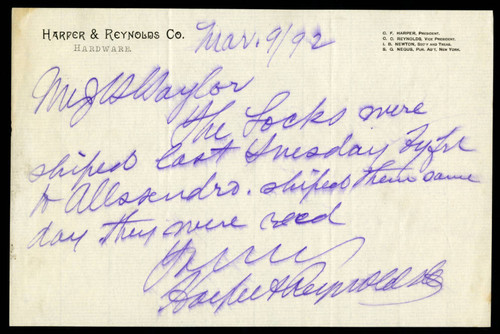 HARPER & REYNOLDS CO.
HARDWARE.
C. F. HARPER, PRESIDENT.
C. C. REYNOLDS, VICE PRESIDENT.
L. B. NEWTON, SEC'Y AND TREAS.
S. G. NEGUS, PUR. AG'T, NEW YORK.
Mar. 9/92
Taylor
The Locks were
shiped last Tuesday
to Allsendro. shiped them same
day they were recd
Yours
Harper & Reynolds Co